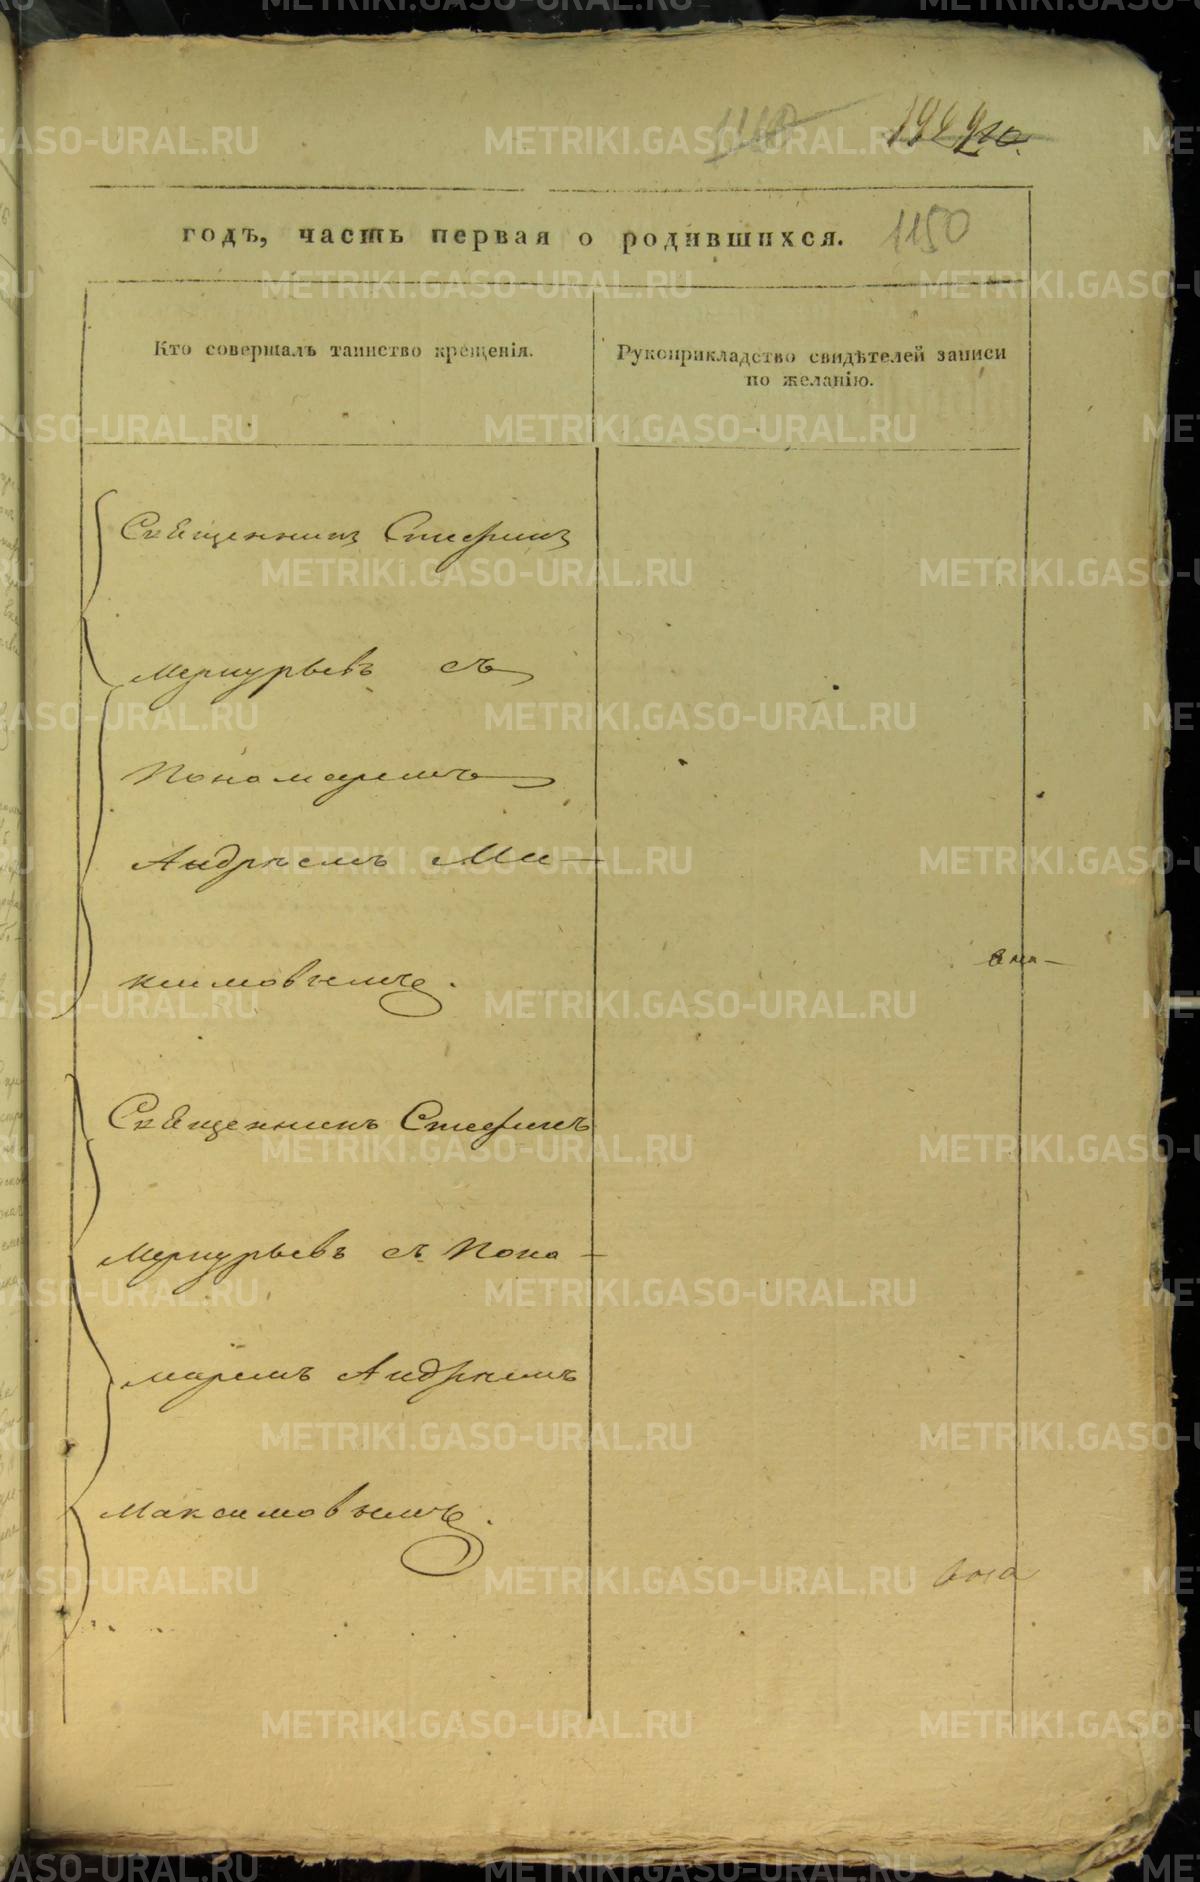 1150
годъ, часть первая о родившихся.
Кто совершалъ таинство крещенія.
Рукоприкладство свидѣтелей записи
по желанію.
Священникъ Стефанъ
Меркурьевъ съ
Пономаремъ
Андреемъ Ма-
ксимовымъ.
Священникъ Стефанъ
Меркурьевъ съ Поно-
маремъ Андреемъ
Максимовымъ.
METRIKI.GASO-URAL.RU